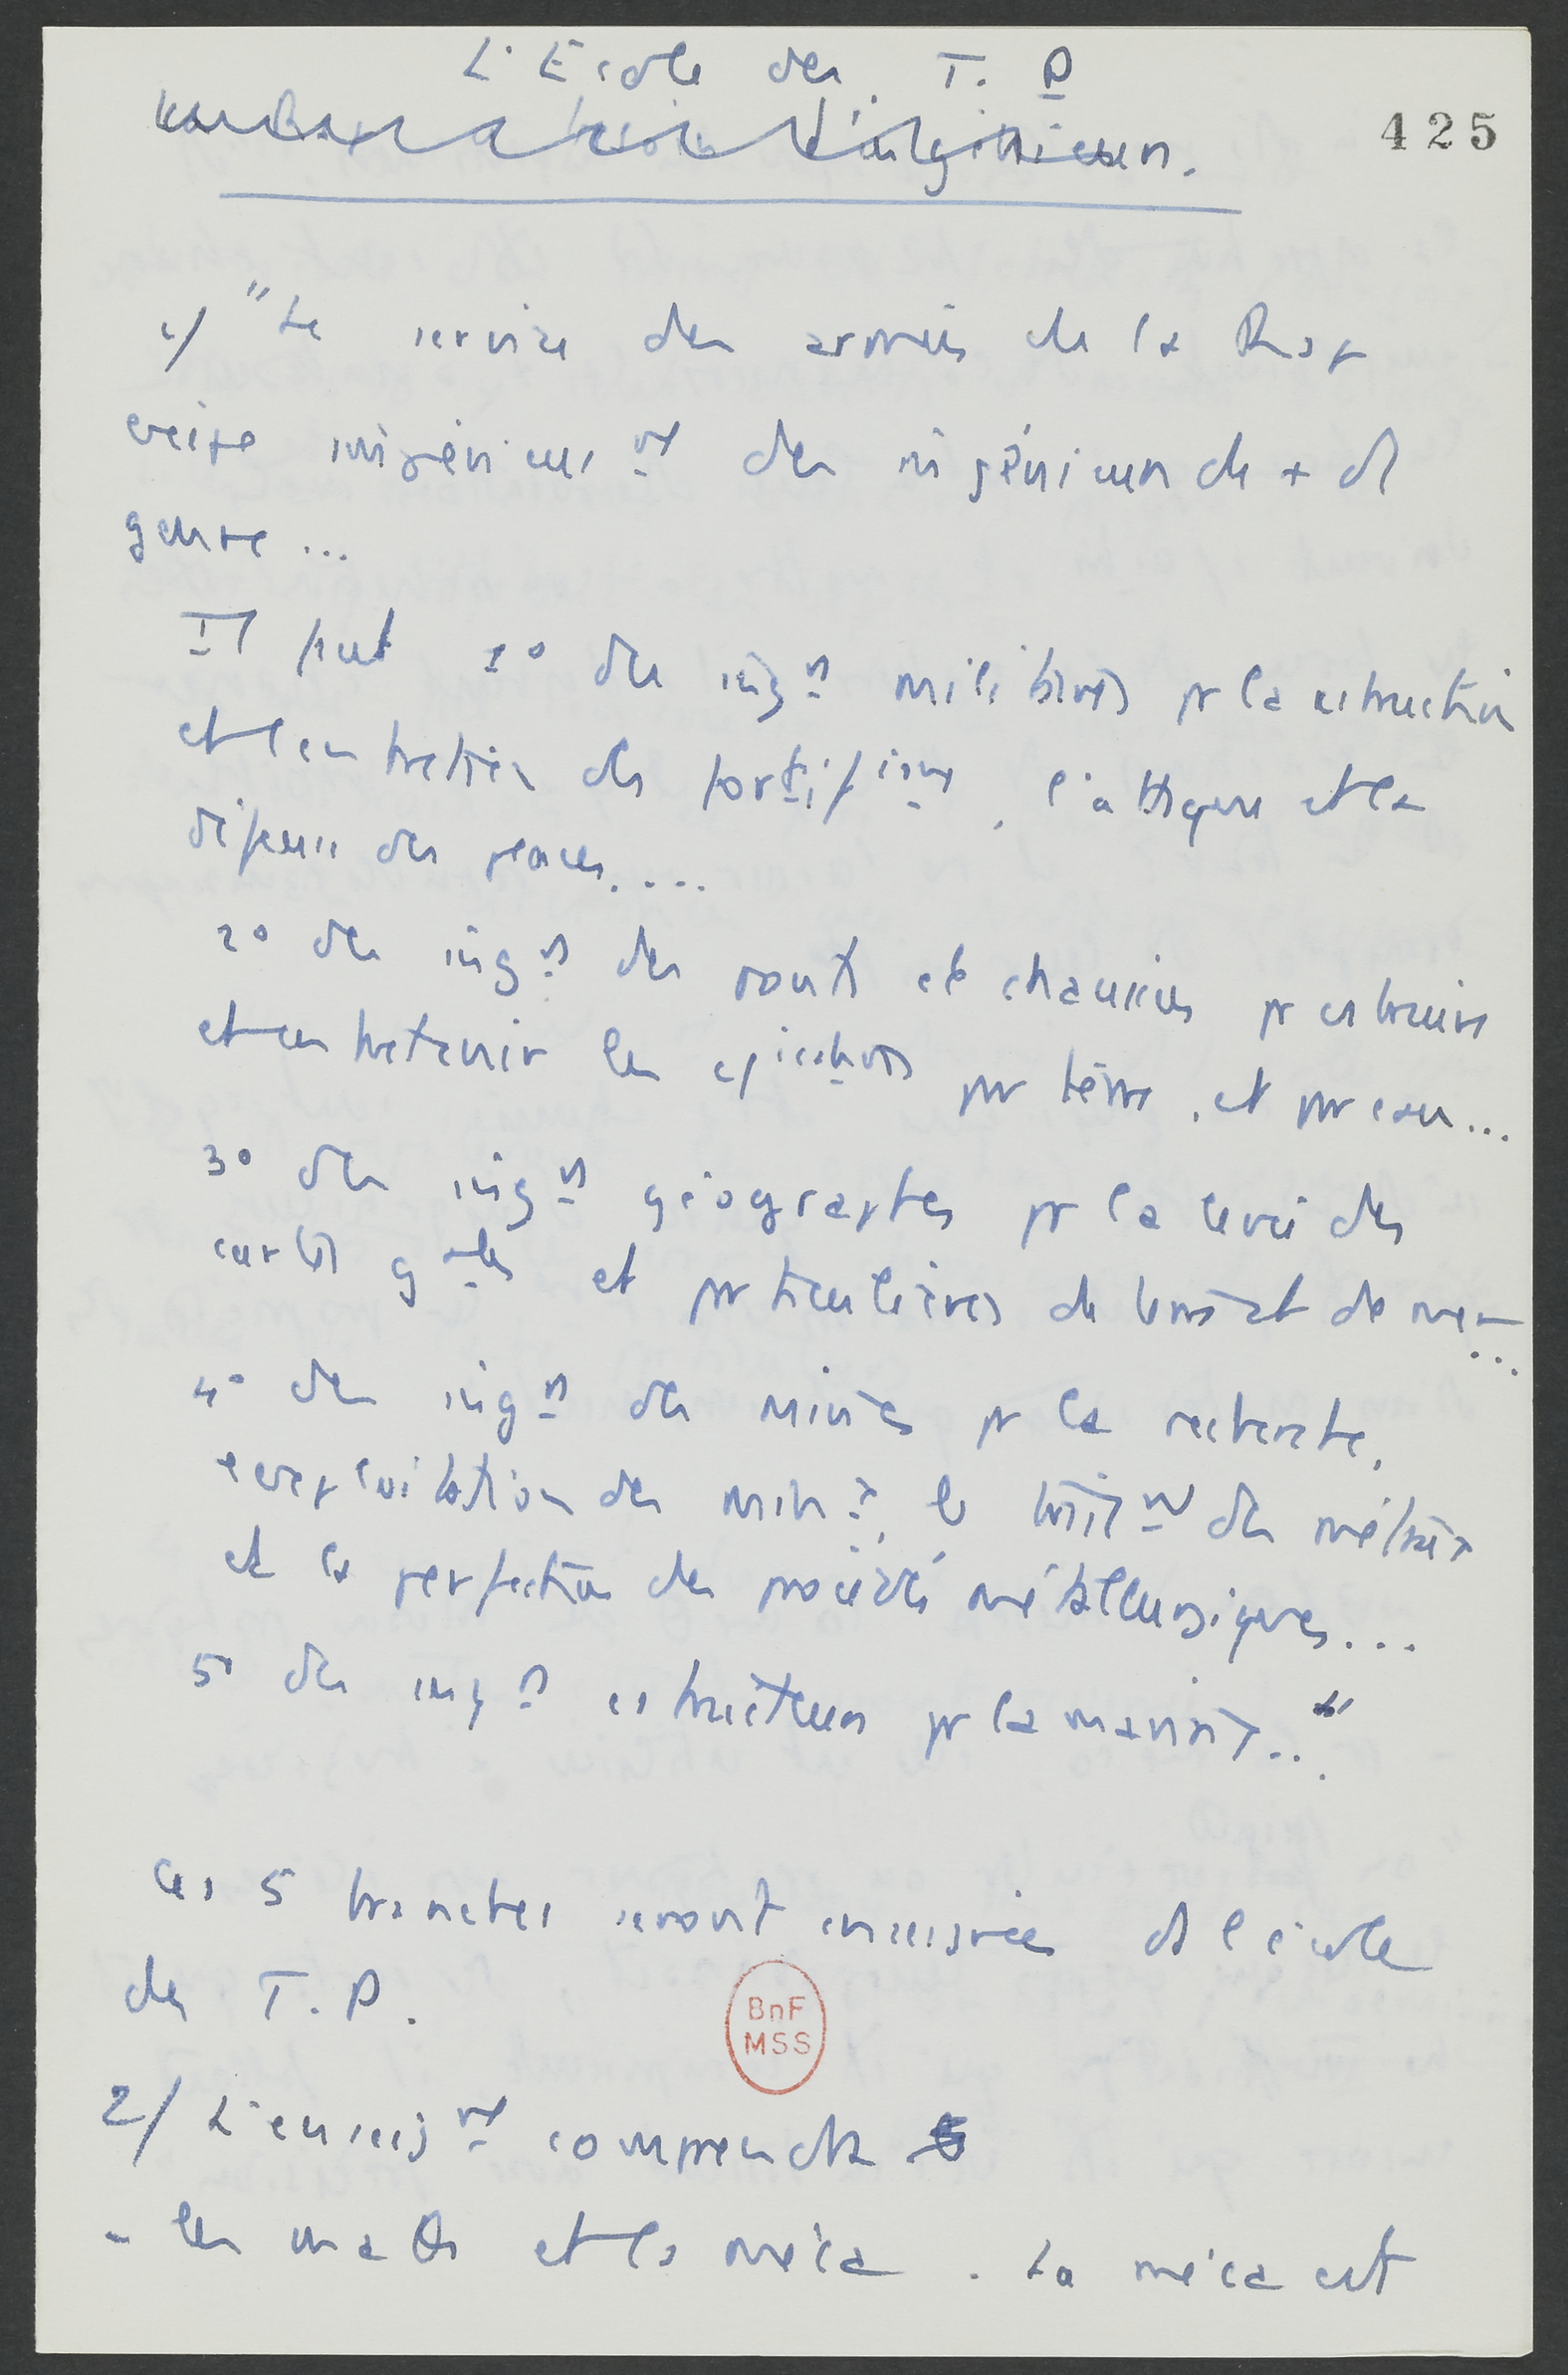 L'Ecole des T. P
425
1/ "Le service des armées de la Rep
exige ingénieur des ingénieurs de + d
genre ...
Il faut 1° des ingrs militaires pr la cstruction
et l'entretien des fortifions, l'attaque et la
défense des places....
2° des ingrs des ponts et chaussées pr cstruire
et entretenir les par terre, et par eau...
3° des ingrs géographes pr la levée des
cartes gales et particulières de terre et de mer
...
4° des ingrs des mines pr la recherche,
exploitation des mines, le traitnt des métaux
et la perfection des procédés métallurgiques...
5° des ingrs cstructeurs pr la marine..."
Ces 5 branches seront enseignées ds l'école
des T. P.
BnF
MSS
2/ L'enseignt comprendra
- les maths et la méca. La méca est